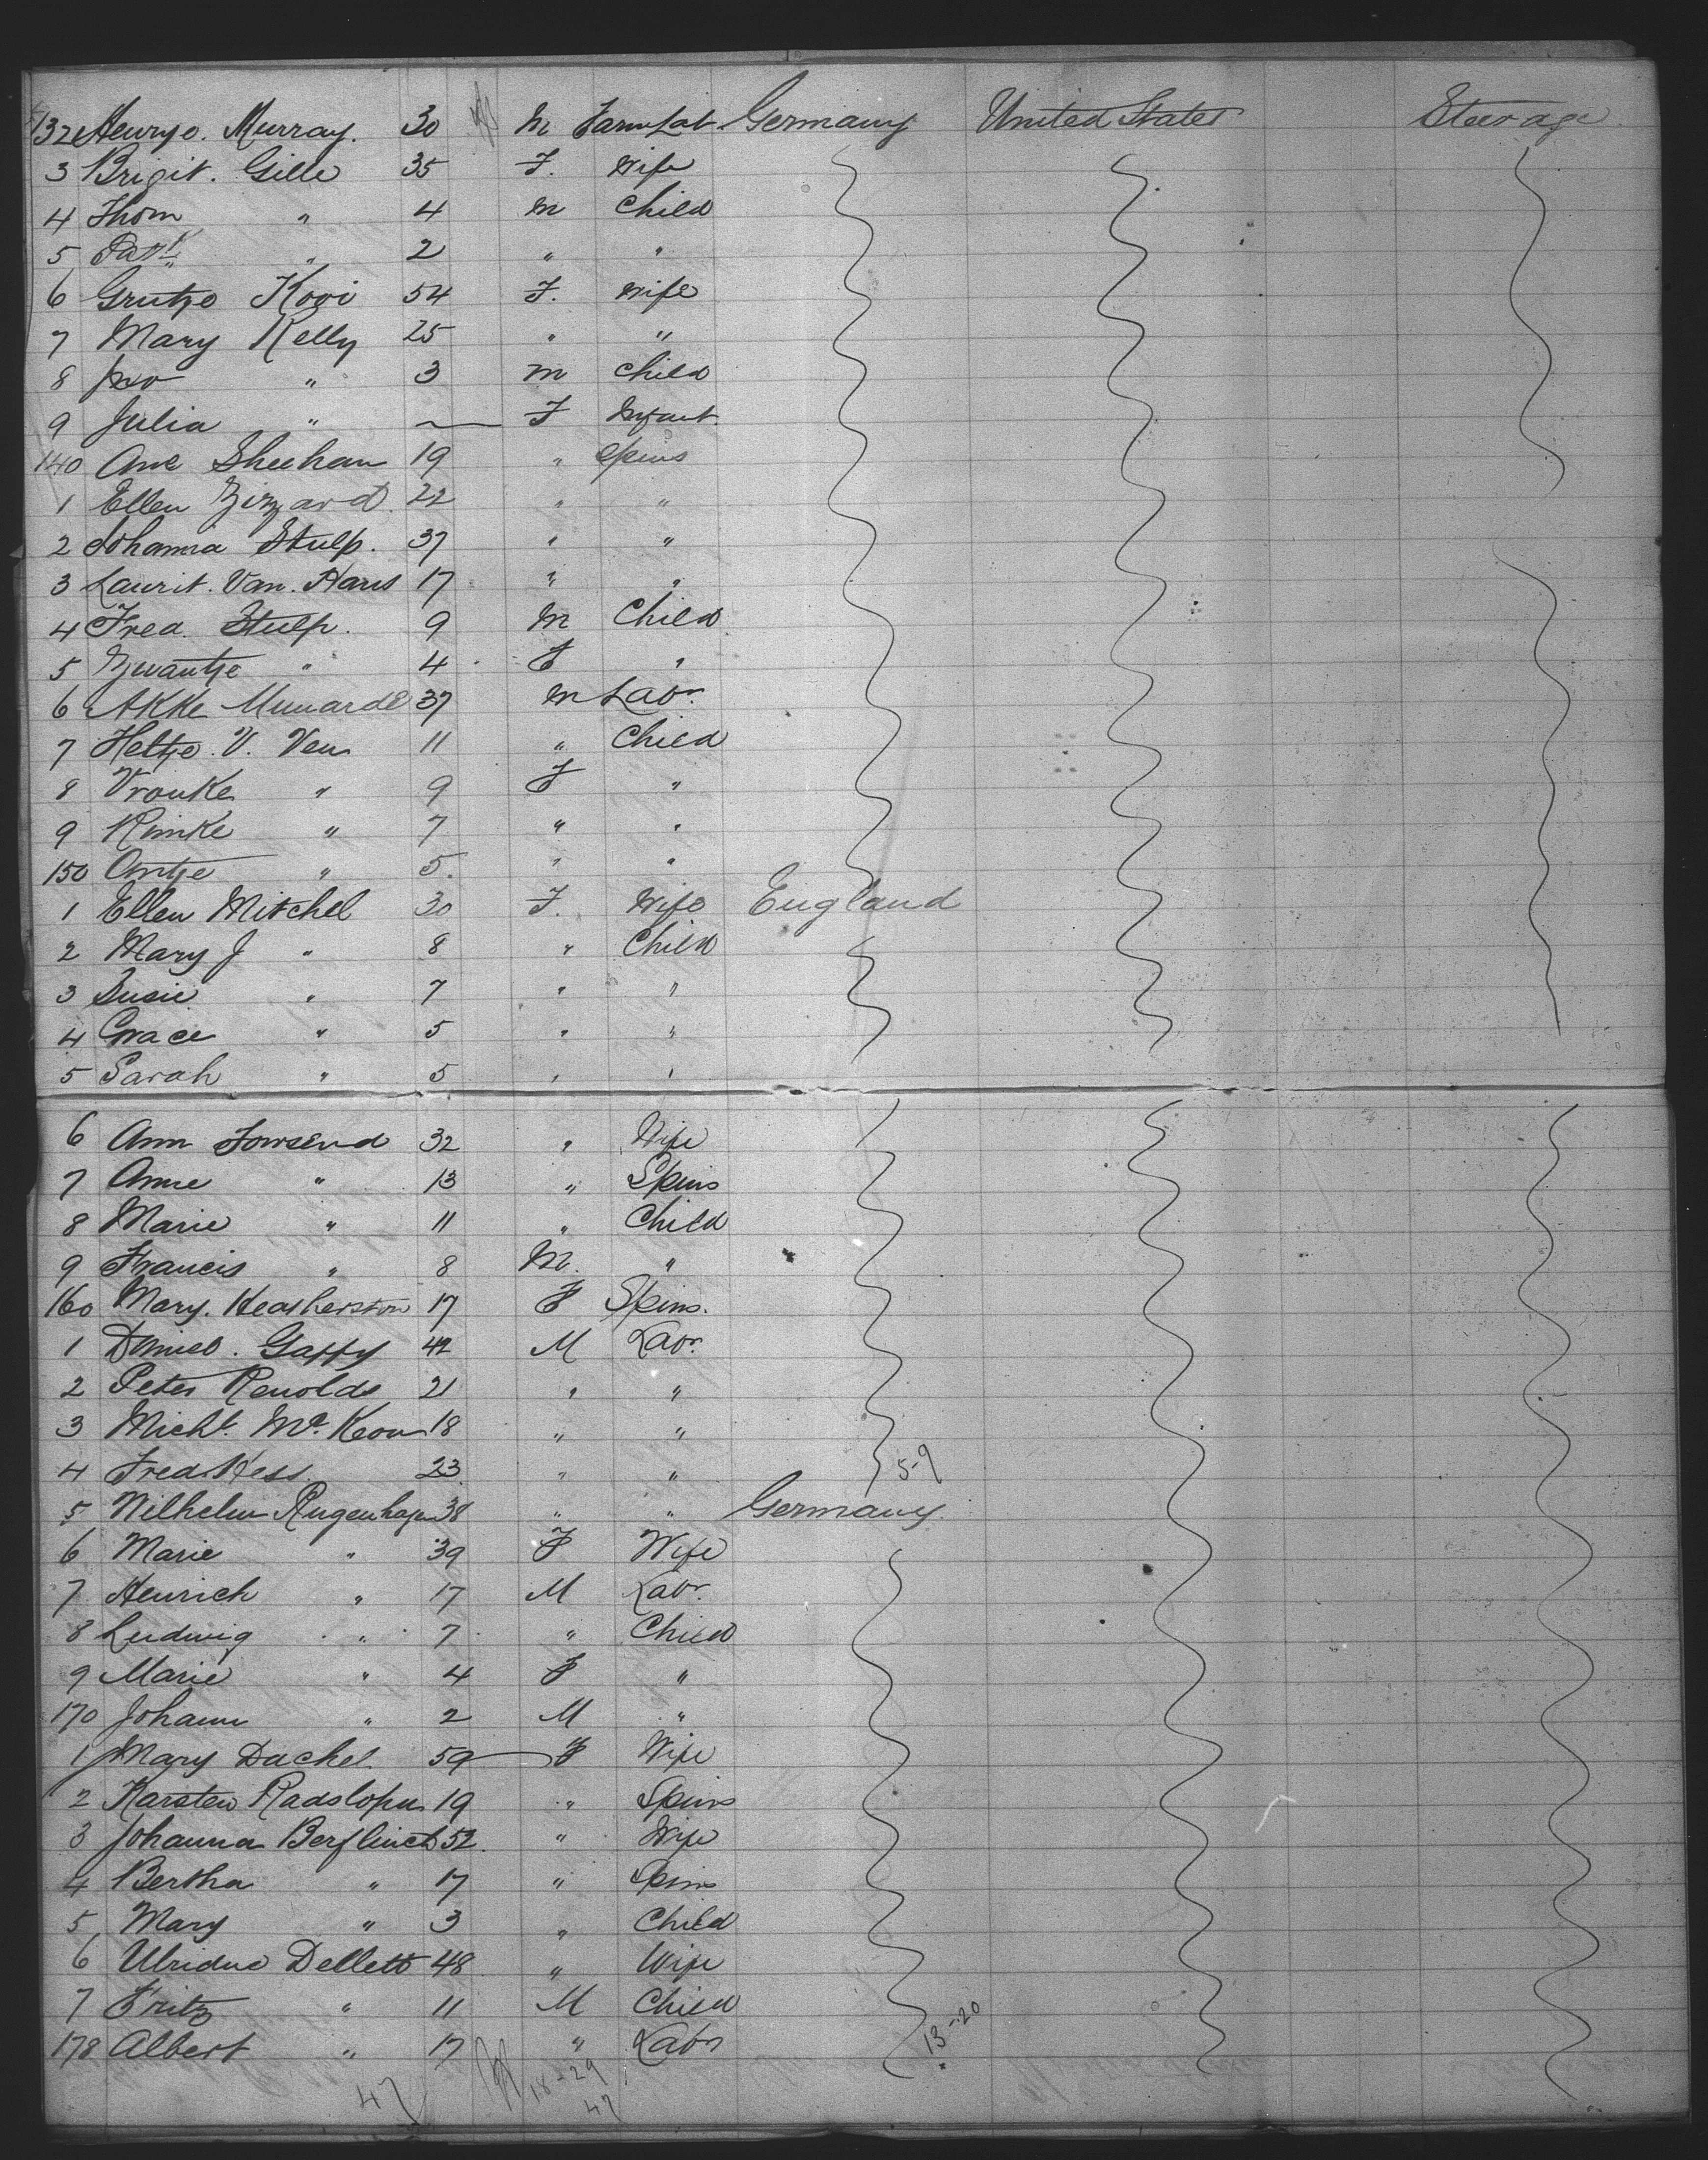 132 Henry o. Murray. 30 M Farm Lab Germany United States Steerage
3 Brigit. Gille 35 F. Wife
4 Thom " 4 M Child
5 Patk " 2 " "
6 Grutje Kooi 54 F. Wife
7 Mary Kelly 25 " "
8 Jno " 3 M Child
9 Julia " — F Infant.
140 Ane Sheehan 19 " Spins
1 Ellen Bizzard. 22 " "
2 Johanna Stulp. 37 " "
3 Laurit. Van. Hans 17 " "
4 Fred. Stulp. 9 M Child
5 Zwantje " 4 F "
6 Akke Munardl 37 M Labr.
7 Heltje. V. Ven 11 " Child
8 Vrouke " 9 F "
9 Rimke " 7 " "
150 Antje " 5. " "
1 Ellen Mitchel 30 F. Wife England
2 Mary J " 8 " Child
3 Susie " 7 " "
4 Grace " 5 " "
5 Sarah " 5 " "
6 Ann Towsend 32 " Wife
7 Anne " 13 " Spins
8 Marie " 11 " Child
9 Francis " 8 M. "
160 Mary. Heatherston 17 F Spins.
1 Daniel. Gaffy 42 M Labr.
2 Peter Renolds 21 " "
3 Michl. Mc. Keon 18 " "
4 Fred. Hess. 23 " " 5-9
5 Wilhelm Rugenhagen 38 " " Germany
6 Marie " 39 F Wife
7 Henrich " 17 M Labr.
8 Ludwig " 7 " Child
9 Marie " 4 F "
170 Johann " 2 M "
1 Mary Dachel 59 F Wife
2 Karsten Radslopn 19 " Spins
3 Johanna Berflinch 52. " Wife
4 Bertha " 17 " Spins
5 Mary " 3 " Child
6 Ulridne Dellett 48 " Wife
7 Fritz " 11 M Child
178 Albert " 17 " Labr 13-20
47 18-29
47